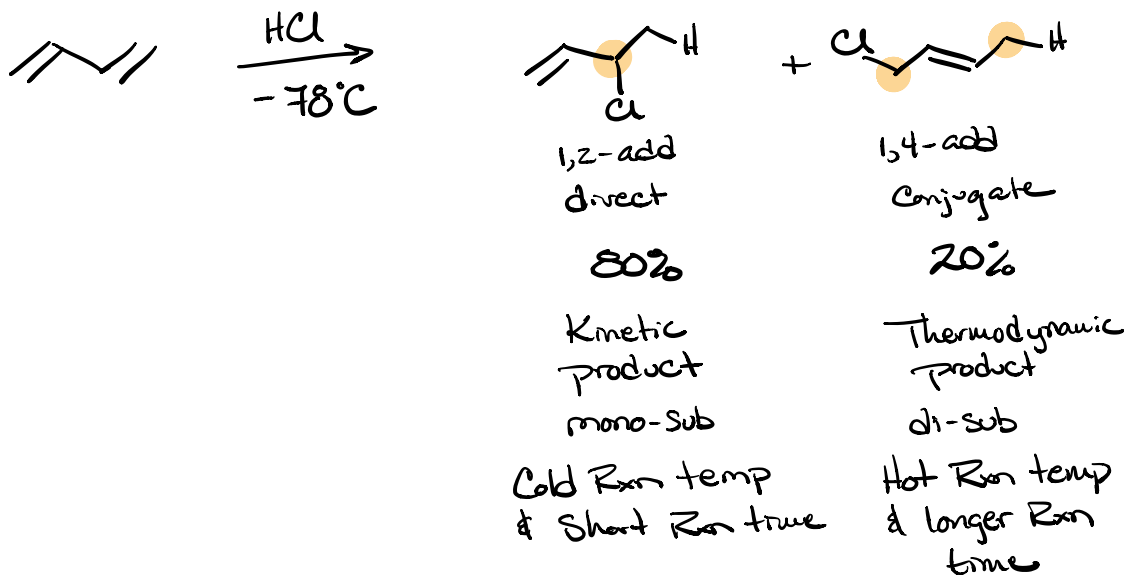 HCl
-78°C
H
Cl
+
Cl
H
1,2-add
direct
80%
Kinetic
product
mono-sub
Cold Rxn temp
& Short Rxn time
1,4-add
Conjugate
20%
Thermodynamic
product
di-sub
Hot Rxn temp
& longer Rxn
time